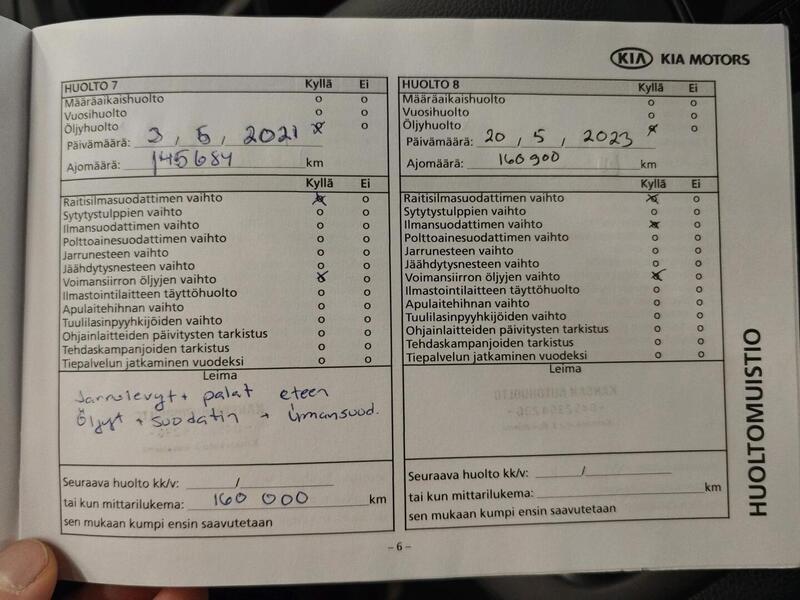 KIA KIA MOTORS
HUOLTO 7 Kyllä Ei
Määräaikaishuolto o o
Vuosihuolto o o
Öljyhuolto x o
Päivämäärä: 3, 5, 2021
Ajomäärä: 145684 km
Kyllä Ei
Raitisilmasuodattimen vaihto x o
Sytytystulppien vaihto o o
Ilmansuodattimen vaihto o o
Polttoainesuodattimen vaihto o o
Jarrunesteen vaihto o o
Jäähdytysnesteen vaihto o o
Voimansiirron öljyjen vaihto x o
Ilmastointilaitteen täyttöhuolto o o
Apulaitehihnan vaihto o o
Tuulilasinpyyhkijöiden vaihto o o
Ohjainlaitteiden päivitysten tarkistus o o
Tehdaskampanjoiden tarkistus o o
Tiepalvelun jatkaminen vuodeksi o o
Leima
Jarrulevyt + palat eteen
Öljyt + suodatin + ilmansuod.
Seuraava huolto kk/v: /
tai kun mittarilukema: 160 000 km
sen mukaan kumpi ensin saavutetaan
HUOLTO 8 Kyllä Ei
Määräaikaishuolto o o
Vuosihuolto o o
Öljyhuolto x o
Päivämäärä: 20, 5, 2023
Ajomäärä: 160900 km
Kyllä Ei
Raitisilmasuodattimen vaihto x o
Sytytystulppien vaihto o o
Ilmansuodattimen vaihto x o
Polttoainesuodattimen vaihto o o
Jarrunesteen vaihto o o
Jäähdytysnesteen vaihto o o
Voimansiirron öljyjen vaihto x o
Ilmastointilaitteen täyttöhuolto o o
Apulaitehihnan vaihto o o
Tuulilasinpyyhkijöiden vaihto o o
Ohjainlaitteiden päivitysten tarkistus o o
Tehdaskampanjoiden tarkistus o o
Tiepalvelun jatkaminen vuodeksi o o
Leima
Seuraava huolto kk/v: /
tai kun mittarilukema: km
sen mukaan kumpi ensin saavutetaan
HUOLTOMUISTIO
– 6 –